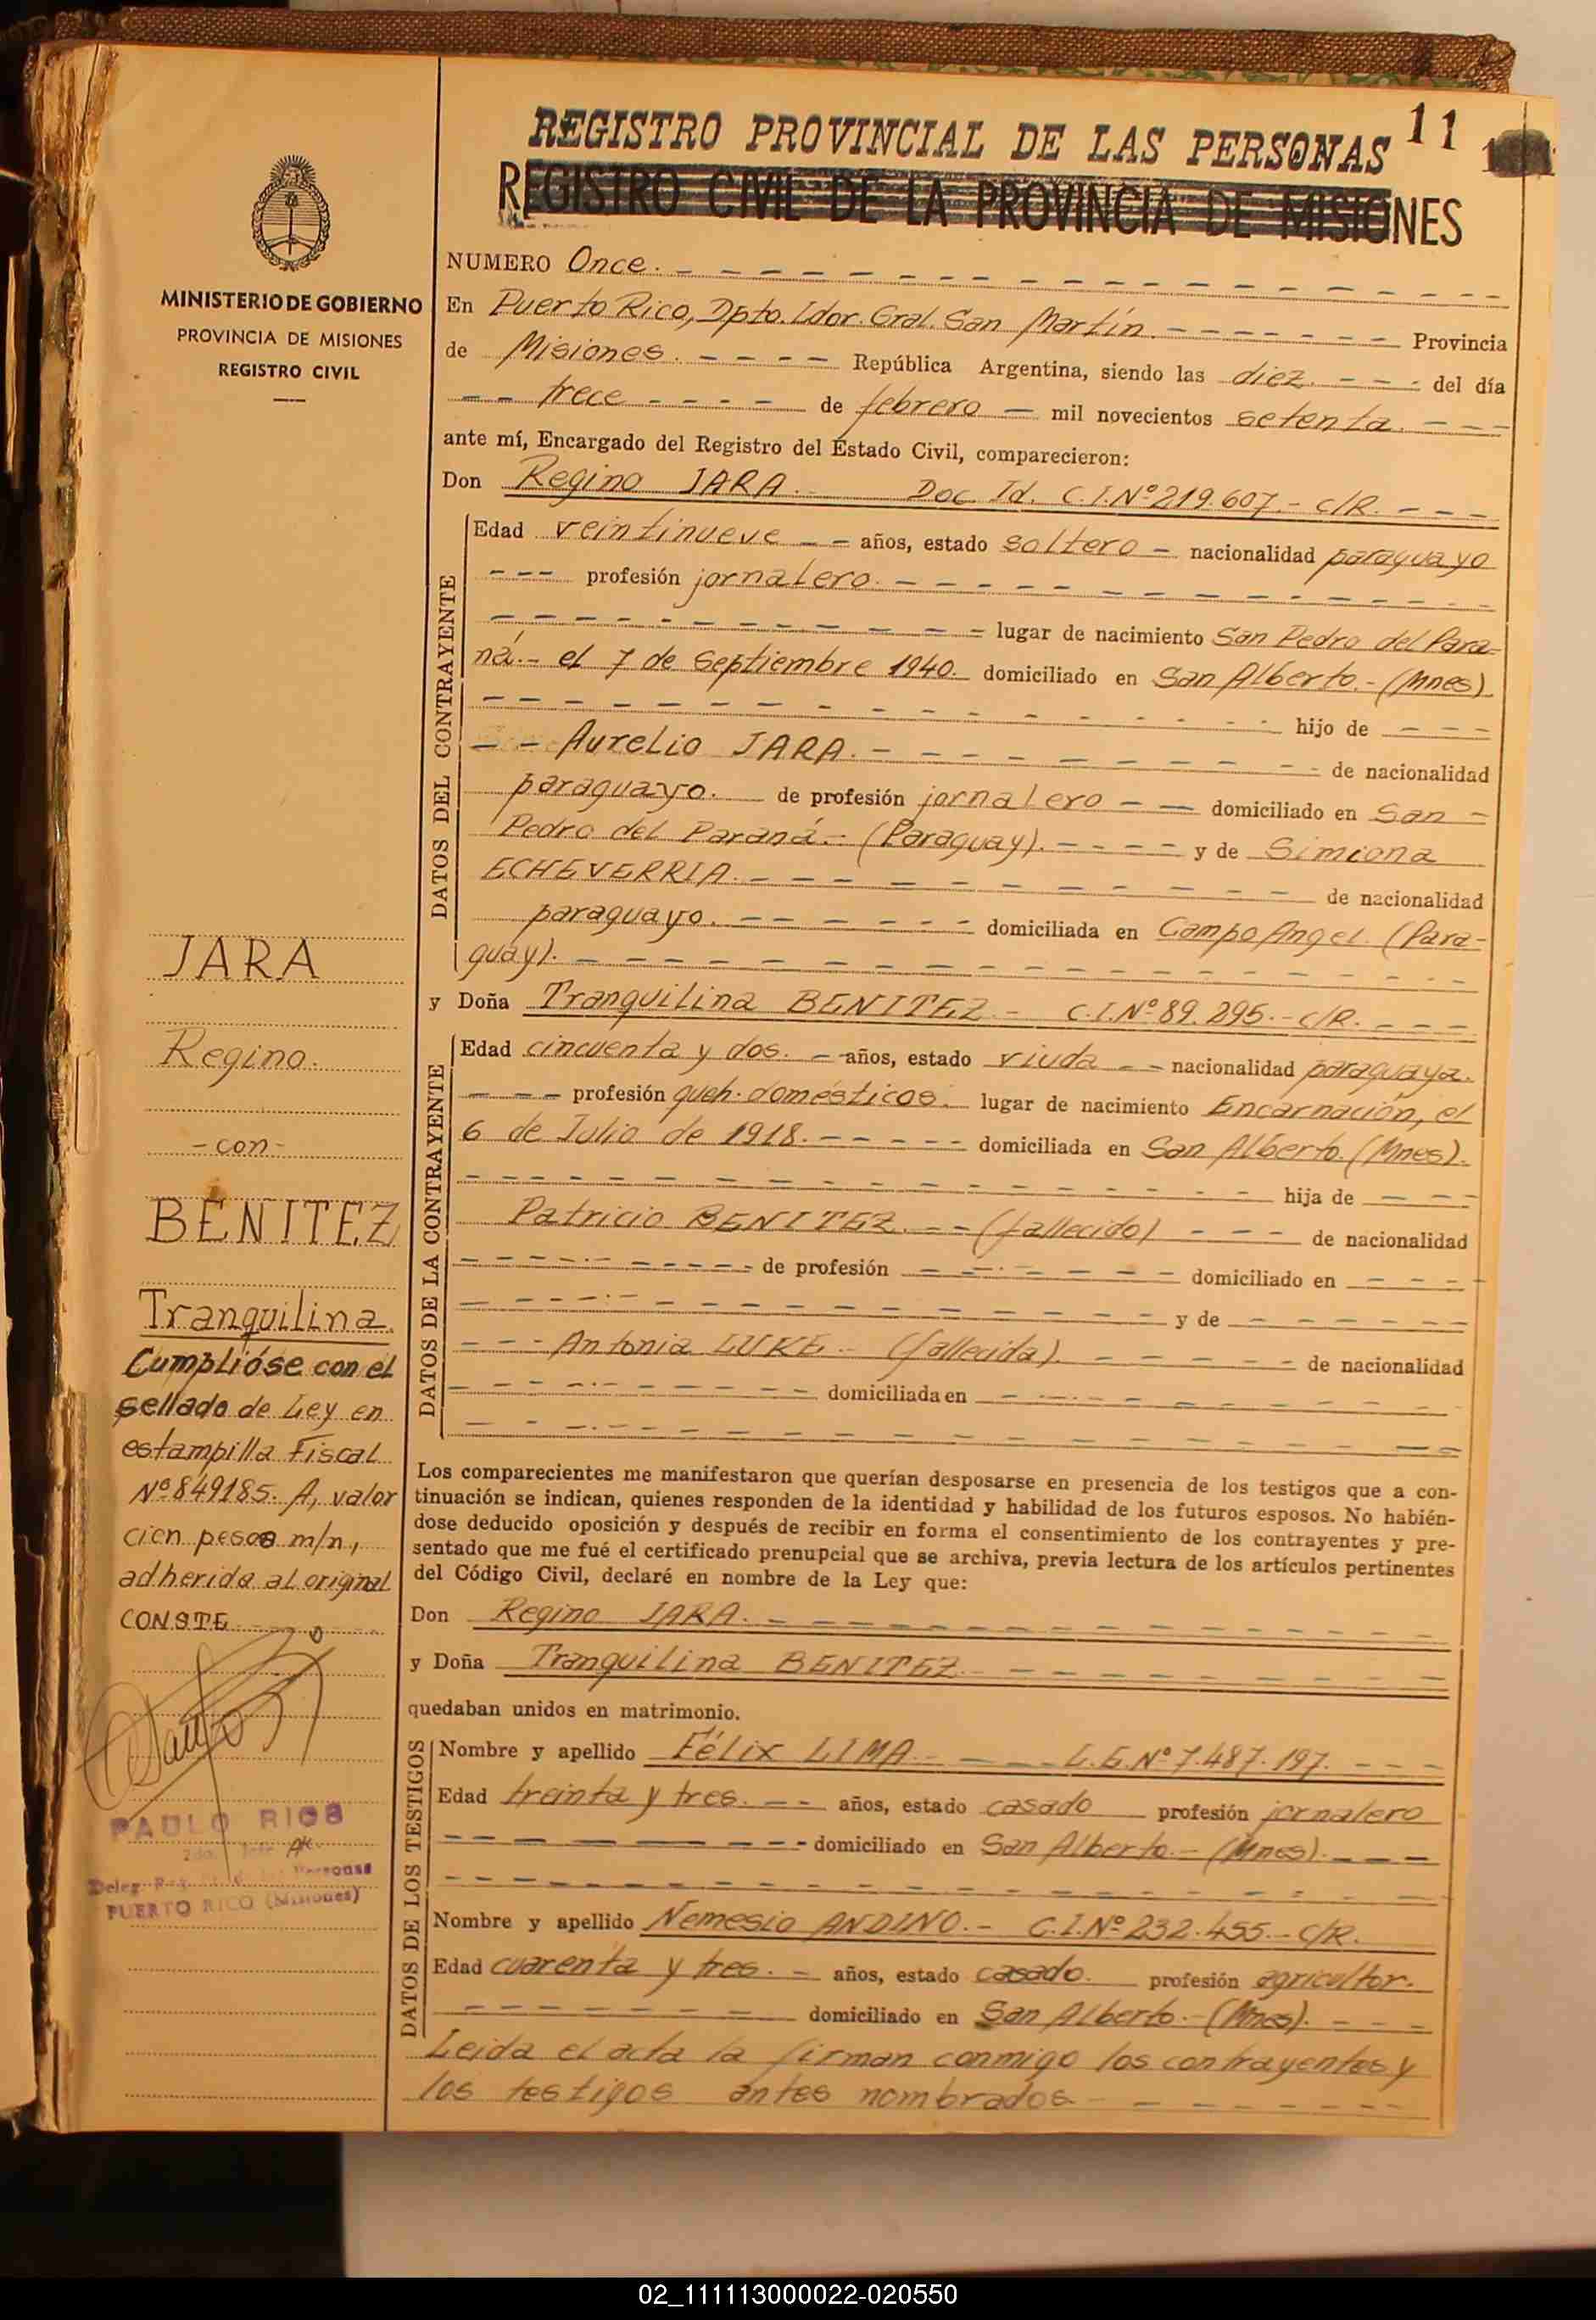 11
REGISTRO PROVINCIAL DE LAS PERSONAS
REGISTRO CIVIL DE LA PROVINCIA DE MISIONES
MINISTERIO DE GOBIERNO
PROVINCIA DE MISIONES
REGISTRO CIVIL
NUMERO Once.
En Puerto Rico, Dpto. Ldor. Gral. San Martín. Provincia
de Misiones. República Argentina, siendo las diez. del día
trece de febrero mil novecientos setenta.
ante mí, Encargado del Registro del Estado Civil, comparecieron:
Don Regino JARA. Doc. Id. C.I.Nº219.607.- c/R.
DATOS DEL CONTRAYENTE
Edad veintinueve años, estado soltero nacionalidad paraguayo
profesión jornalero.
lugar de nacimiento San Pedro del Para-
ná.- el 7 de septiembre 1940. domiciliado en San Alberto.- (Mnes)
hijo de
Aurelio JARA. de nacionalidad
paraguayo. de profesión jornalero domiciliado en San
Pedro del Paraná.- (Paraguay). y de Simeona
ECHEVERRIA. de nacionalidad
paraguayo. domiciliada en Campo Angel. (Para-
guay).
y Doña Tranquilina BENITEZ.- C.I.Nº89.295.- c/R.
DATOS DE LA CONTRAYENTE
Edad cincuenta y dos. años, estado viuda nacionalidad paraguaya.
profesión queh. domésticos. lugar de nacimiento Encarnación, el
6 de Julio de 1918. domiciliada en San Alberto. (Mnes).
hija de
Patricio BENITEZ. (fallecido) de nacionalidad
de profesión domiciliado en
y de
Antonia LUKE.- (fallecida). de nacionalidad
domiciliada en
Los comparecientes me manifestaron que querían desposarse en presencia de los testigos que a con-
tinuación se indican, quienes responden de la identidad y habilidad de los futuros esposos. No habién-
dose deducido oposición y después de recibir en forma el consentimiento de los contrayentes y pre-
sentado que me fué el certificado prenupcial que se archiva, previa lectura de los artículos pertinentes
del Código Civil, declaré en nombre de la Ley que:
Don Regino JARA.
y Doña Tranquilina BENITEZ.
quedaban unidos en matrimonio.
DATOS DE LOS TESTIGOS
Nombre y apellido Félix LIMA. L.E.Nº7.487.197.
Edad treinta y tres. años, estado casado profesión jornalero
domiciliado en San Alberto.- (Mnes).
Nombre y apellido Nemesio ANDINO.- C.I.Nº232.455.- c/R.
Edad cuarenta y tres. años, estado casado. profesión agricultor.
domiciliado en San Alberto.- (Mnes).
Leida el acta la firman conmigo los contrayentes y
los testigos antes nombrados.
JARA
Regino.
-con-
BENITEZ
Tranquilina.
Cumplióse con el
sellado de Ley en
estampilla Fiscal
Nº849185. A, valor
cien pesos m/n,
adherida al original
CONSTE
PAULO RIOS
2do. Jefe
Deleg. Reg. de las Personas
PUERTO RICO (Misiones)
02_111113000022-020550